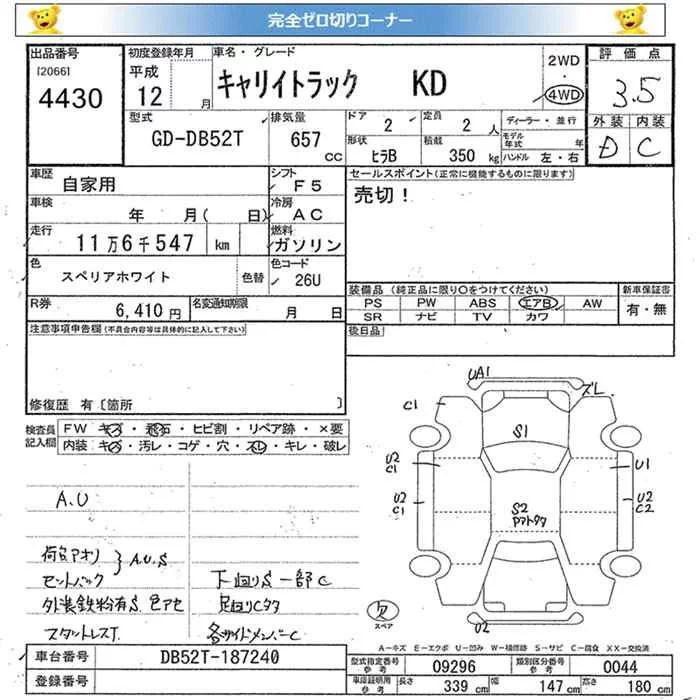 完全ゼロ切りコーナー
出品番号 初度登録年月 車名・グレード 2WD・4WD 評価点
[2066] 平成 12 月 キャリイトラック KD 3.5
4430
型式 排気量 ドア 2 定員 2 人 ディーラー・並行 外装 内装
GD-DB52T 657 cc 形状 ヒラB 積載 350 kg モデル年式 年 D C
ハンドル 左・右
車歴 自家用 シフト F5 セールスポイント(正常に機能するものに限ります)
車検 年 月( 日) 冷房 AC 売切!
走行 11万6千547 km 燃料 ガソリン
色 スペリアホワイト 色替 色コード 26U
装備品(純正品に限り○をつけてください) 新車保証書
R券 6,410円 名変通知期限 月 日 PS PW ABS エアB AW 有・無
SR ナビ TV カワ
注意事項申告欄(不具合内容等は具体的に記入して下さい) 後日品
修復歴 有〔箇所 〕
検査員記入欄 FW キズ・飛石・ヒビ割・リペア跡・×要
内装・キズ・汚レ・コゲ・穴・スレ・キレ・破レ
UA1 ズレ
C1
S1
U2 C1 U1
U2 C1 U2 C2
S2
U2
A.U
荷台アオリ
セットバック A.U.S
外装鉄粉有S.色アセ
スタットレスT.
下回りS一部C
足回りC
各サイドメンバーC
スペア
A-キズ E-エクボ U-凹み W-補修跡 S-サビ C-腐食 XX-交換済
車台番号 DB52T-187240 型式指定番号 参考 09296 類別区分番号 参考 0044
登録番号 車庫証明用 参考 長さ 339 cm 幅 147 cm 高さ 180 cm